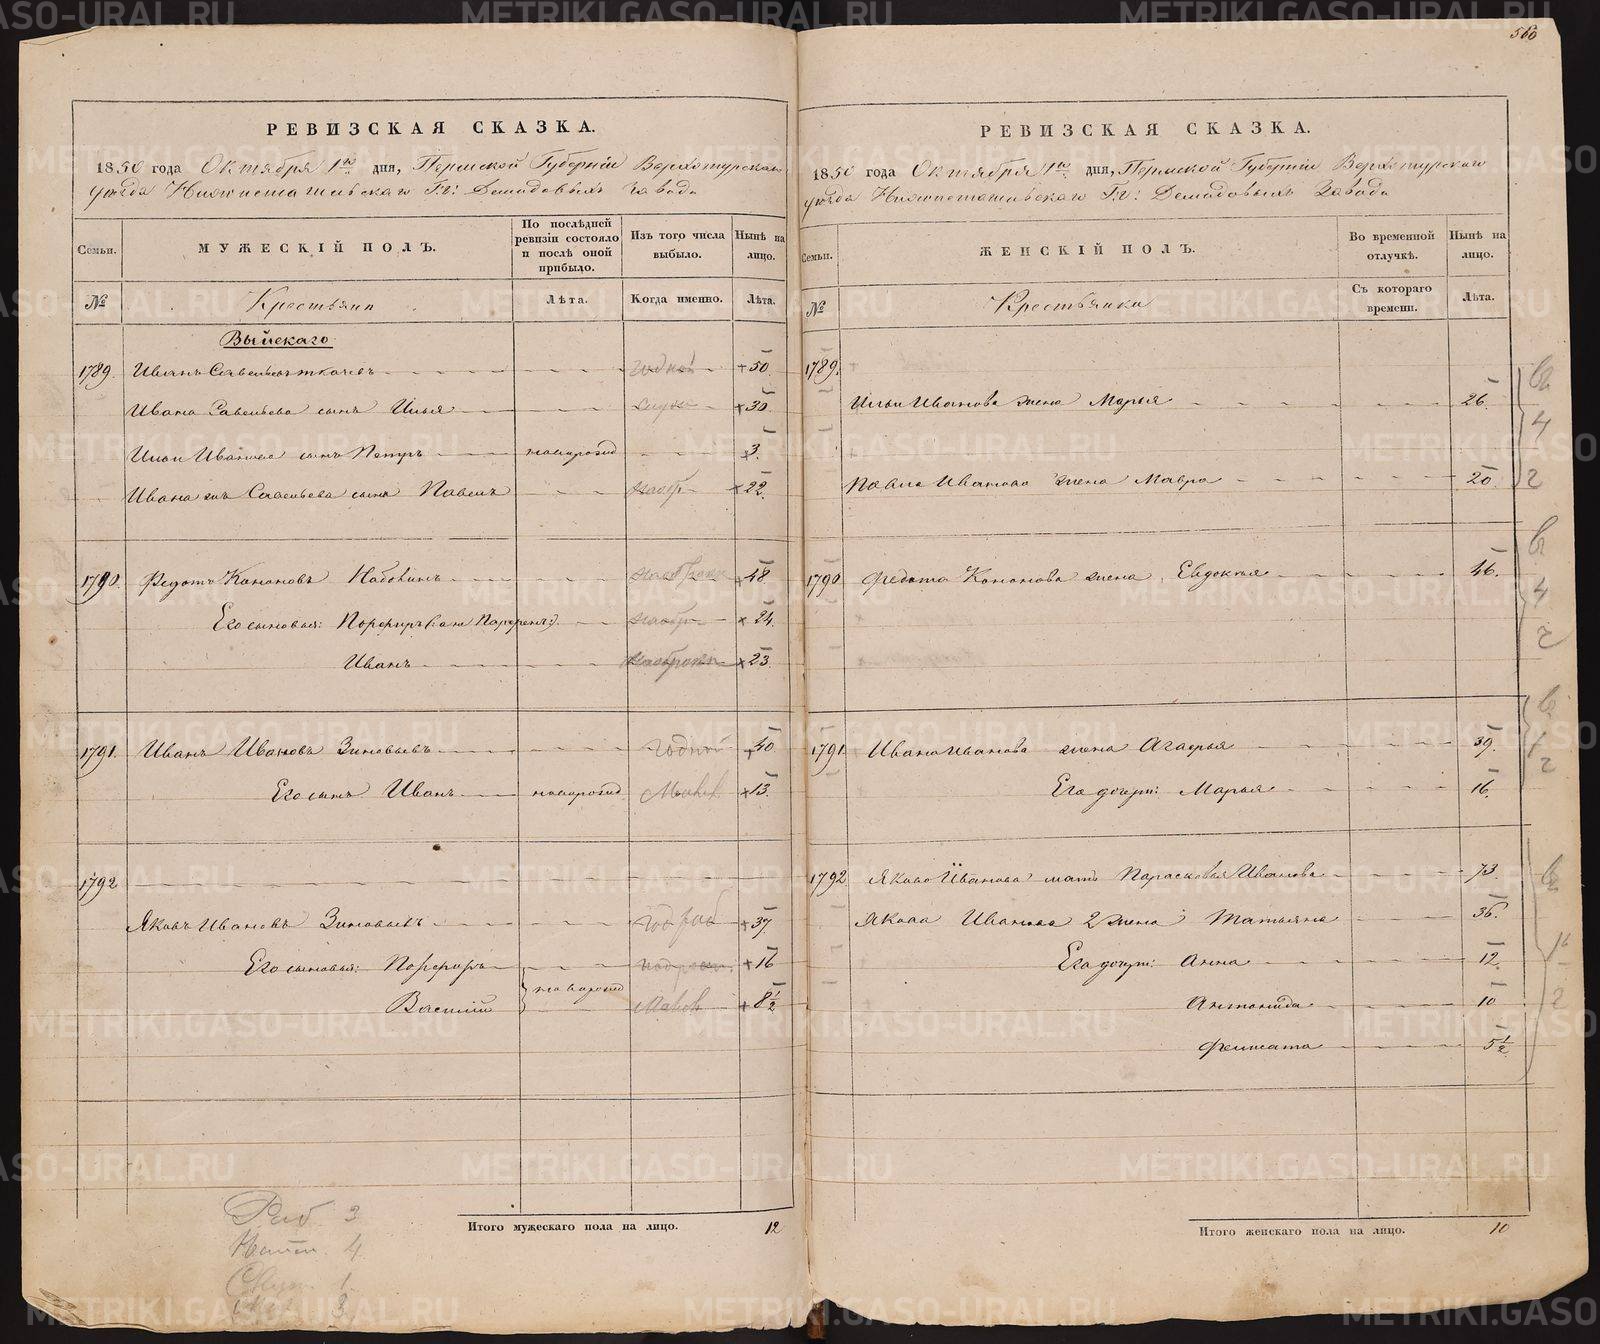 560
РЕВИЗСКАЯ СКАЗКА.
1850 года Октября 1го дня, Пермской Губерніи Верхотурскаго
уѣзда Нижнетагильскаго Г.г: Демидовыхъ завода
Семьи.
МУЖЕСКІЙ ПОЛЪ.
По послѣдней ревизіи состояло и послѣ оной прибыло.
Изъ того числа выбыло.
Нынѣ на лицо.
№
Крестьяне
Лѣта.
Когда именно.
Лѣта.
Выйскаго
1789. Иванъ Савельевъ Ткачевъ годной 50.
Ивана Савельева сынъ Илья 30.
Ильи Иванова сынъ Петръ новорожд 3.
Ивана же Савельева сынъ Павелъ 22.
1790. Федотъ Конановъ 48.
Его сыновья: Порфиръ (: он Парфенъ:) 24.
Иванъ 23.
1791. Иванъ Ивановъ Зиновьевъ годной 40
Его сынъ Иванъ новорожд 13.
1792
Яковъ Ивановъ Зиновьевъ год раб 37.
Его сыновья: Порфиръ 16
Василій новорожд 8½
Раб. 3
4
1
3
Итого мужескаго пола на лицо. 12
РЕВИЗСКАЯ СКАЗКА.
1850 года Октября 1го дня, Пермской Губерніи Верхотурскаго
уѣзда Нижнетагильскаго Г.г: Демидовыхъ Завода
Семьи.
ЖЕНСКІЙ ПОЛЪ.
Во временной отлучкѣ.
Нынѣ на лицо.
№
Крестьянки
Съ котораго времени.
Лѣта.
1789.
Ильи Иванова жена Марья 26.
Павла Иванова жена Мавра 20.
1790 Федота Конанова жена Евдокья 46.
1791 Ивана Иванова жена Агафья 39.
Его дочерь: Марья 16.
1792 Якова Иванова мать Парасковья Иванова 73.
Якова Иванова 2 жена Татьяна 36.
Его дочери: Анна 12.
Антонида 10
Феклисата 5½
Итого женскаго пола на лицо. 10
METRIKI.GASO-URAL.RU